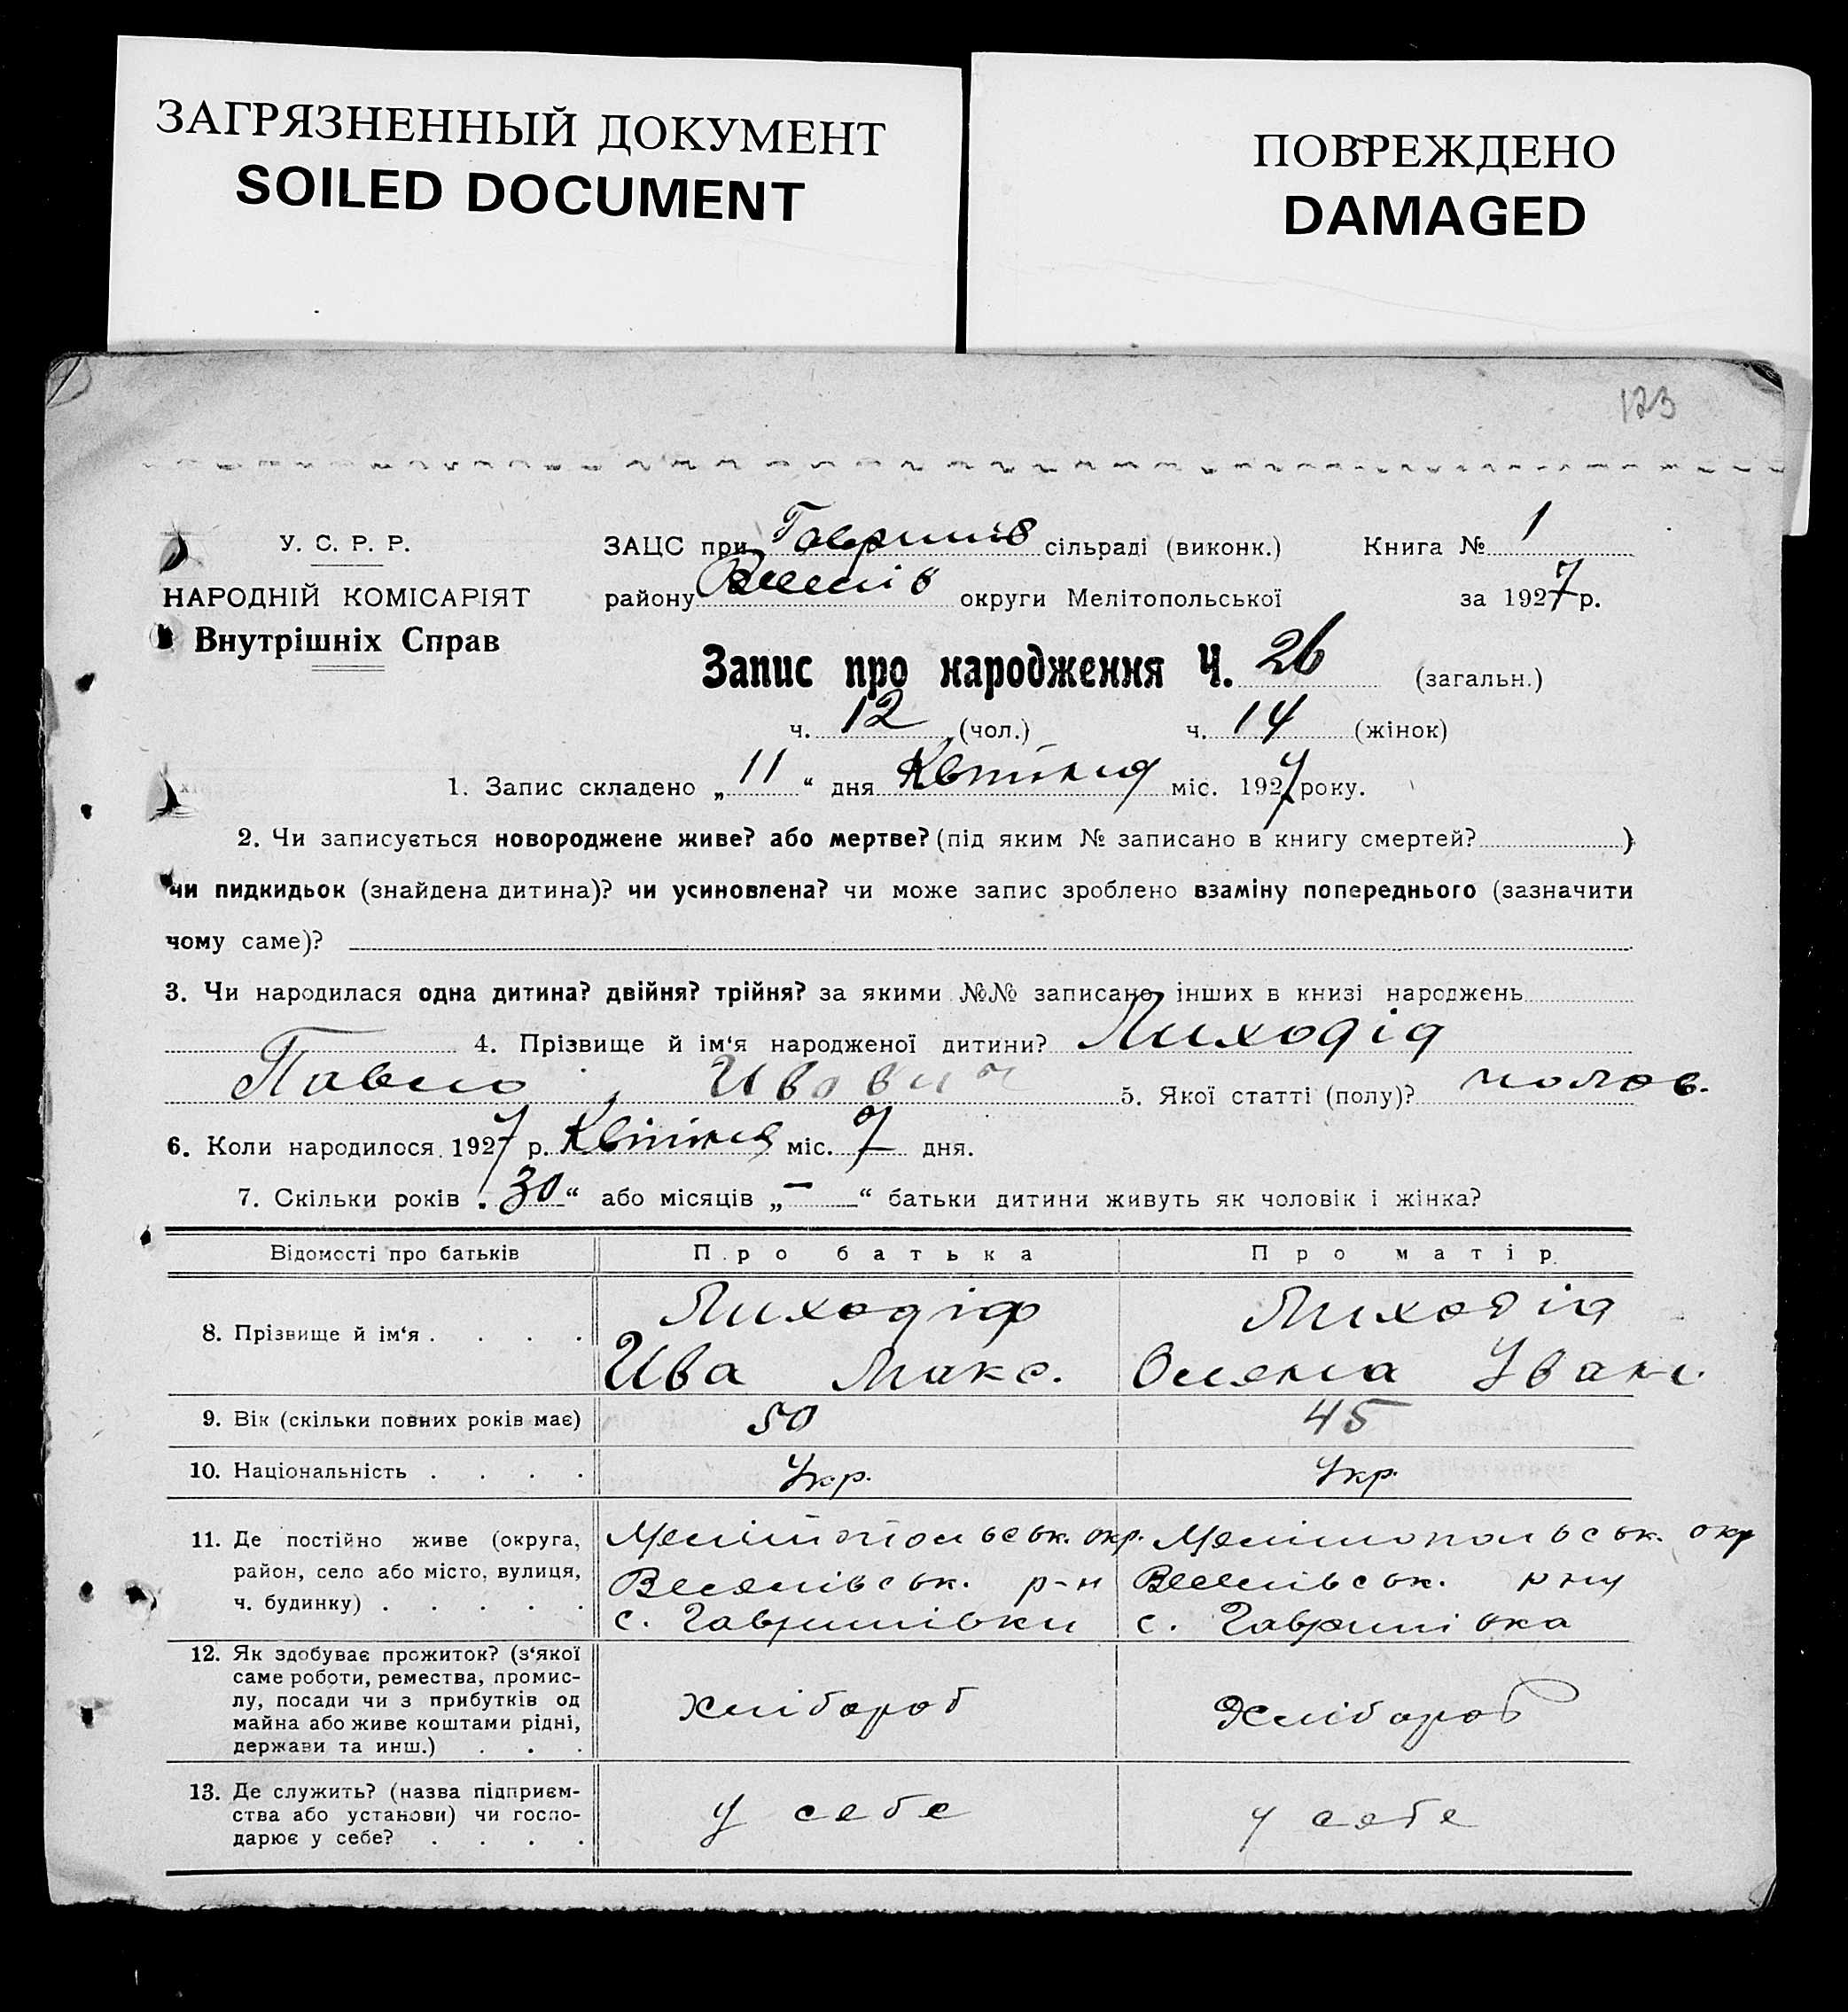 ЗАГРЯЗНЕННЫЙ ДОКУМЕНТ
SOILED DOCUMENT
ПОВРЕЖДЕНО
DAMAGED
123
У. С. Р. Р.
НАРОДНІЙ КОМІСАРІЯТ
Внутрішніх Справ
ЗАЦС при Гаврилів сільраді (виконк.) Книга № 1
району Веселів округи Мелітопольської за 1927 р.
Запис про народження Ч. 26 (загальн.)
ч. 12 (чол.) ч. 14 (жінок)
1. Запис складено „ 11 “ дня Квітня міс. 1927 року.
2. Чи записується новороджене живе? або мертве? (під яким № записано в книгу смертей? )
чи пидкидьок (знайдена дитина)? чи усиновлена? чи може запис зроблено взаміну попереднього (зазначити
чому саме)?
3. Чи народилася одна дитина? двійня? трійня? за якими №№ записано інших в книзі народжень
4. Прізвище й ім‘я народженої дитини? Лиходід
Павло Ивович 5. Якої статті (полу)? чолов.
6. Коли народилося 1927 р. Квітня міс. 7 дня.
7. Скільки років „ 30 “ або місяців „ — “ батьки дитини живуть як чоловік і жінка?
Відомості про батьків Про батька Про матір
8. Прізвище й ім‘я . . . . Лиходід Лиходід
Ива Макс. Олена Іван.
9. Вік (скільки повних років має) 50 45
10. Національність . . . . Укр. Укр.
11. Де постійно живе (округа, район, село або місто, вулиця, ч. будинку) . . . . .
Мелітопольськ. окр. Мелітопольськ. окр
Веселівськ. р-н Веселівськ. р-ну
с. Гаврилівки с. Гаврилівка
12. Як здобуває прожиток? (з‘якої
саме роботи, ремества, промис-
лу, посади чи з прибутків од
майна або живе коштами рідні,
держави та инш.) . . .
Хлібороб Хлібороб
13. Де служить? (назва підприєм-
ства або установи) чи госпо-
дарює у себе? . . . .
у себе у себе